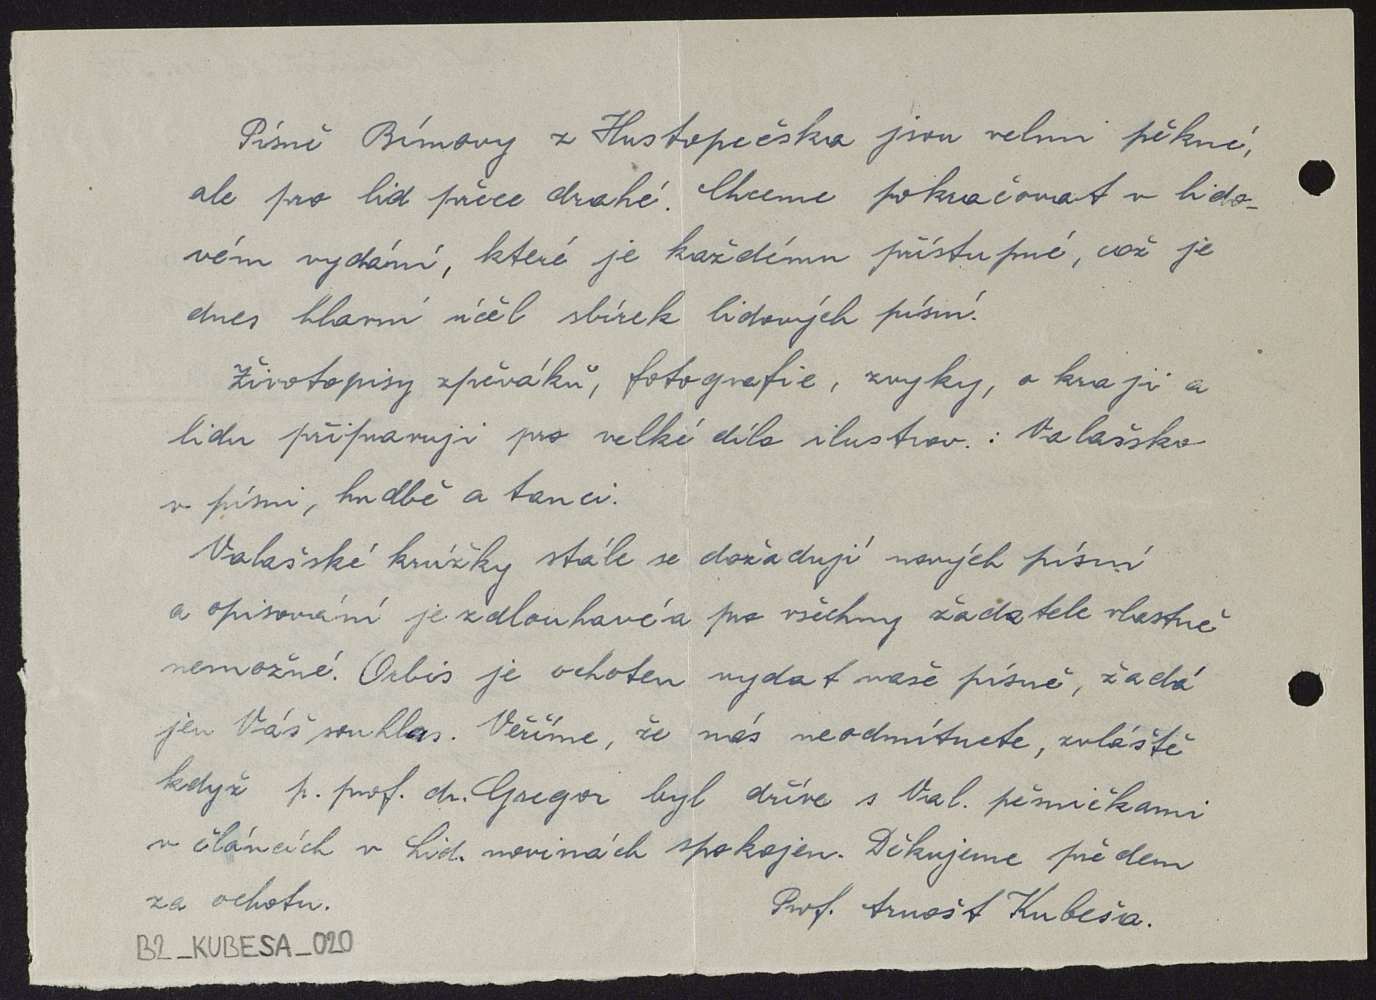 Písně Bímovy z Hustopečska jsou velmi pěkné,
ale pro lid přece drahé. Chceme pokračovat v lido-
vém vydání, které je každému přístupné, což je
dnes hlavní účel sbírek lidových písní.
Životopisy zpěváků, fotografie, zvyky, o kraji a
lidu připravuji pro velké dílo ilustrov. : Valašsko
v písni, hudbě a tanci.
Valašské krúžky stále se dožadují nových písní
a opisování je zdlouhavé a pro všechny žadatele vlastně
nemožné. Orbis je ochoten vydat naše písně, žádá
jen Váš souhlas. Věříme, že nás neodmítnete, zvláště
když p. prof. dr. Gregor byl dříve s Val. pěsničkami
v článcích v Lid. novinách spokojen. Děkujeme předem
za ochotu.
Prof. Arnošt Kubeša.
B2_KUBESA_020